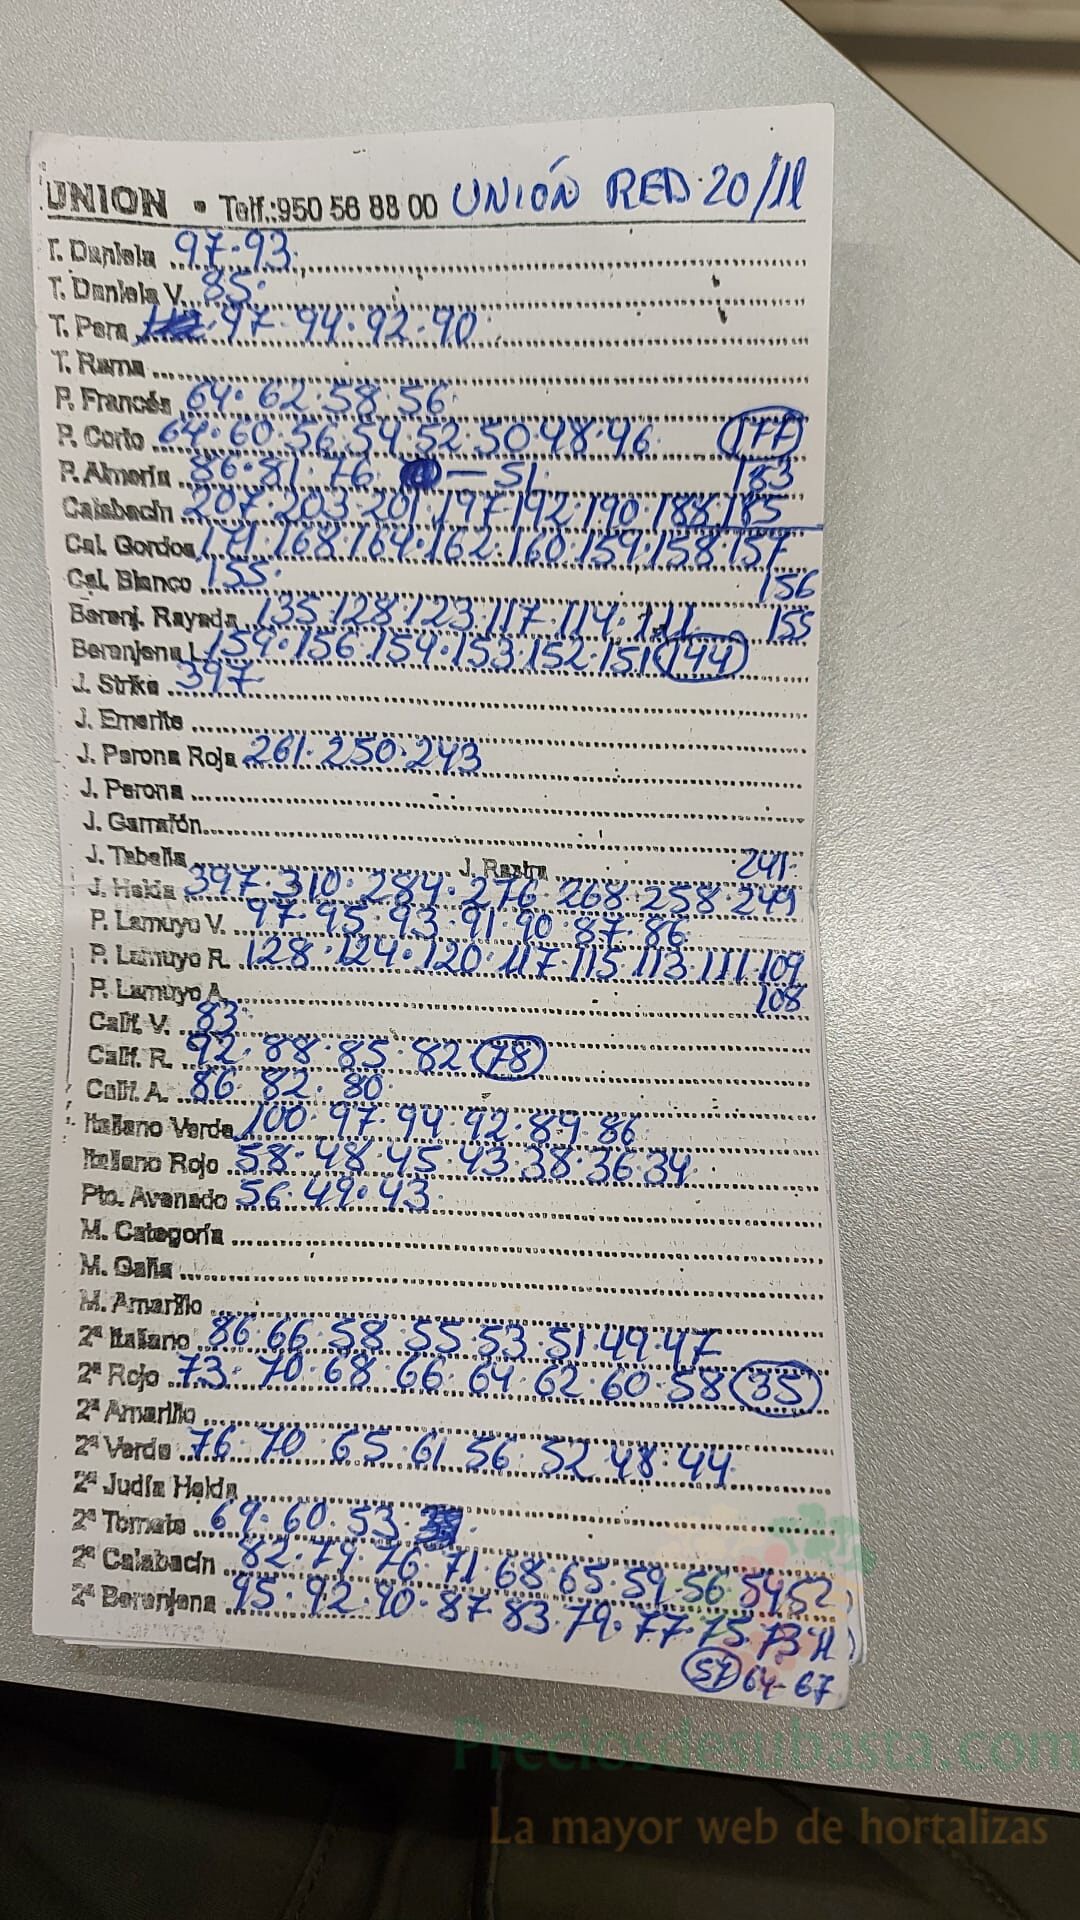 UNION • Telf.:950 56 88 00 UNIÓN RED 20/11
T. Daniela 97·93
T. Daniela V. 85
T. Pera 97·94·92·90
T. Rama
P. Francés 64·62·58·56
P. Corto 64·60·56·54·52·50·48·46 177
P. Almería 86·81·76 — 51 183
Calabacín 207·203·201·197·192·190·188·185
Cal. Gordos 171·168·164·162·160·159·158·157
Cal. Blanco 155 156
Berenj. Rayada 135·128·123·117·114·111 155
Berenjena L. 159·156·154·153·152·151 144
J. Strike 397
J. Emerite
J. Perona Roja 261·250·243
J. Perona
J. Garrafón
J. Tabella J. Rastra 241
J. Helda 397·310·284·276·268·258·249
P. Lamuyo V. 97·95·93·91·90·87·86
P. Lamuyo R. 128·124·120·117·115·113·111·109
P. Lamuyo A. 108
Calif. V. 83
Calif. R. 92·88·85·82 78
Calif. A. 86·82·80
Italiano Verde 100·97·94·92·89·86
Italiano Rojo 58·48·45·43·38·36·34
Pto. Avenado 56·49·43
M. Categoría
M. Galia
M. Amarillo
2ª Italiano 86·66·58·55·53·51·49·47
2ª Rojo 73·70·68·66·64·62·60·58 35
2ª Amarillo
2ª Verde 76·70·65·61·56·52·48·44
2ª Judía Helda
2ª Tomate 69·60·53
2ª Calabacín 82·79·76·71·68·65·59·56·54·52
2ª Berenjena 95·92·90·87·83·79·77·75·73
64-67
Preciosdesubasta.com
La mayor web de hortalizas